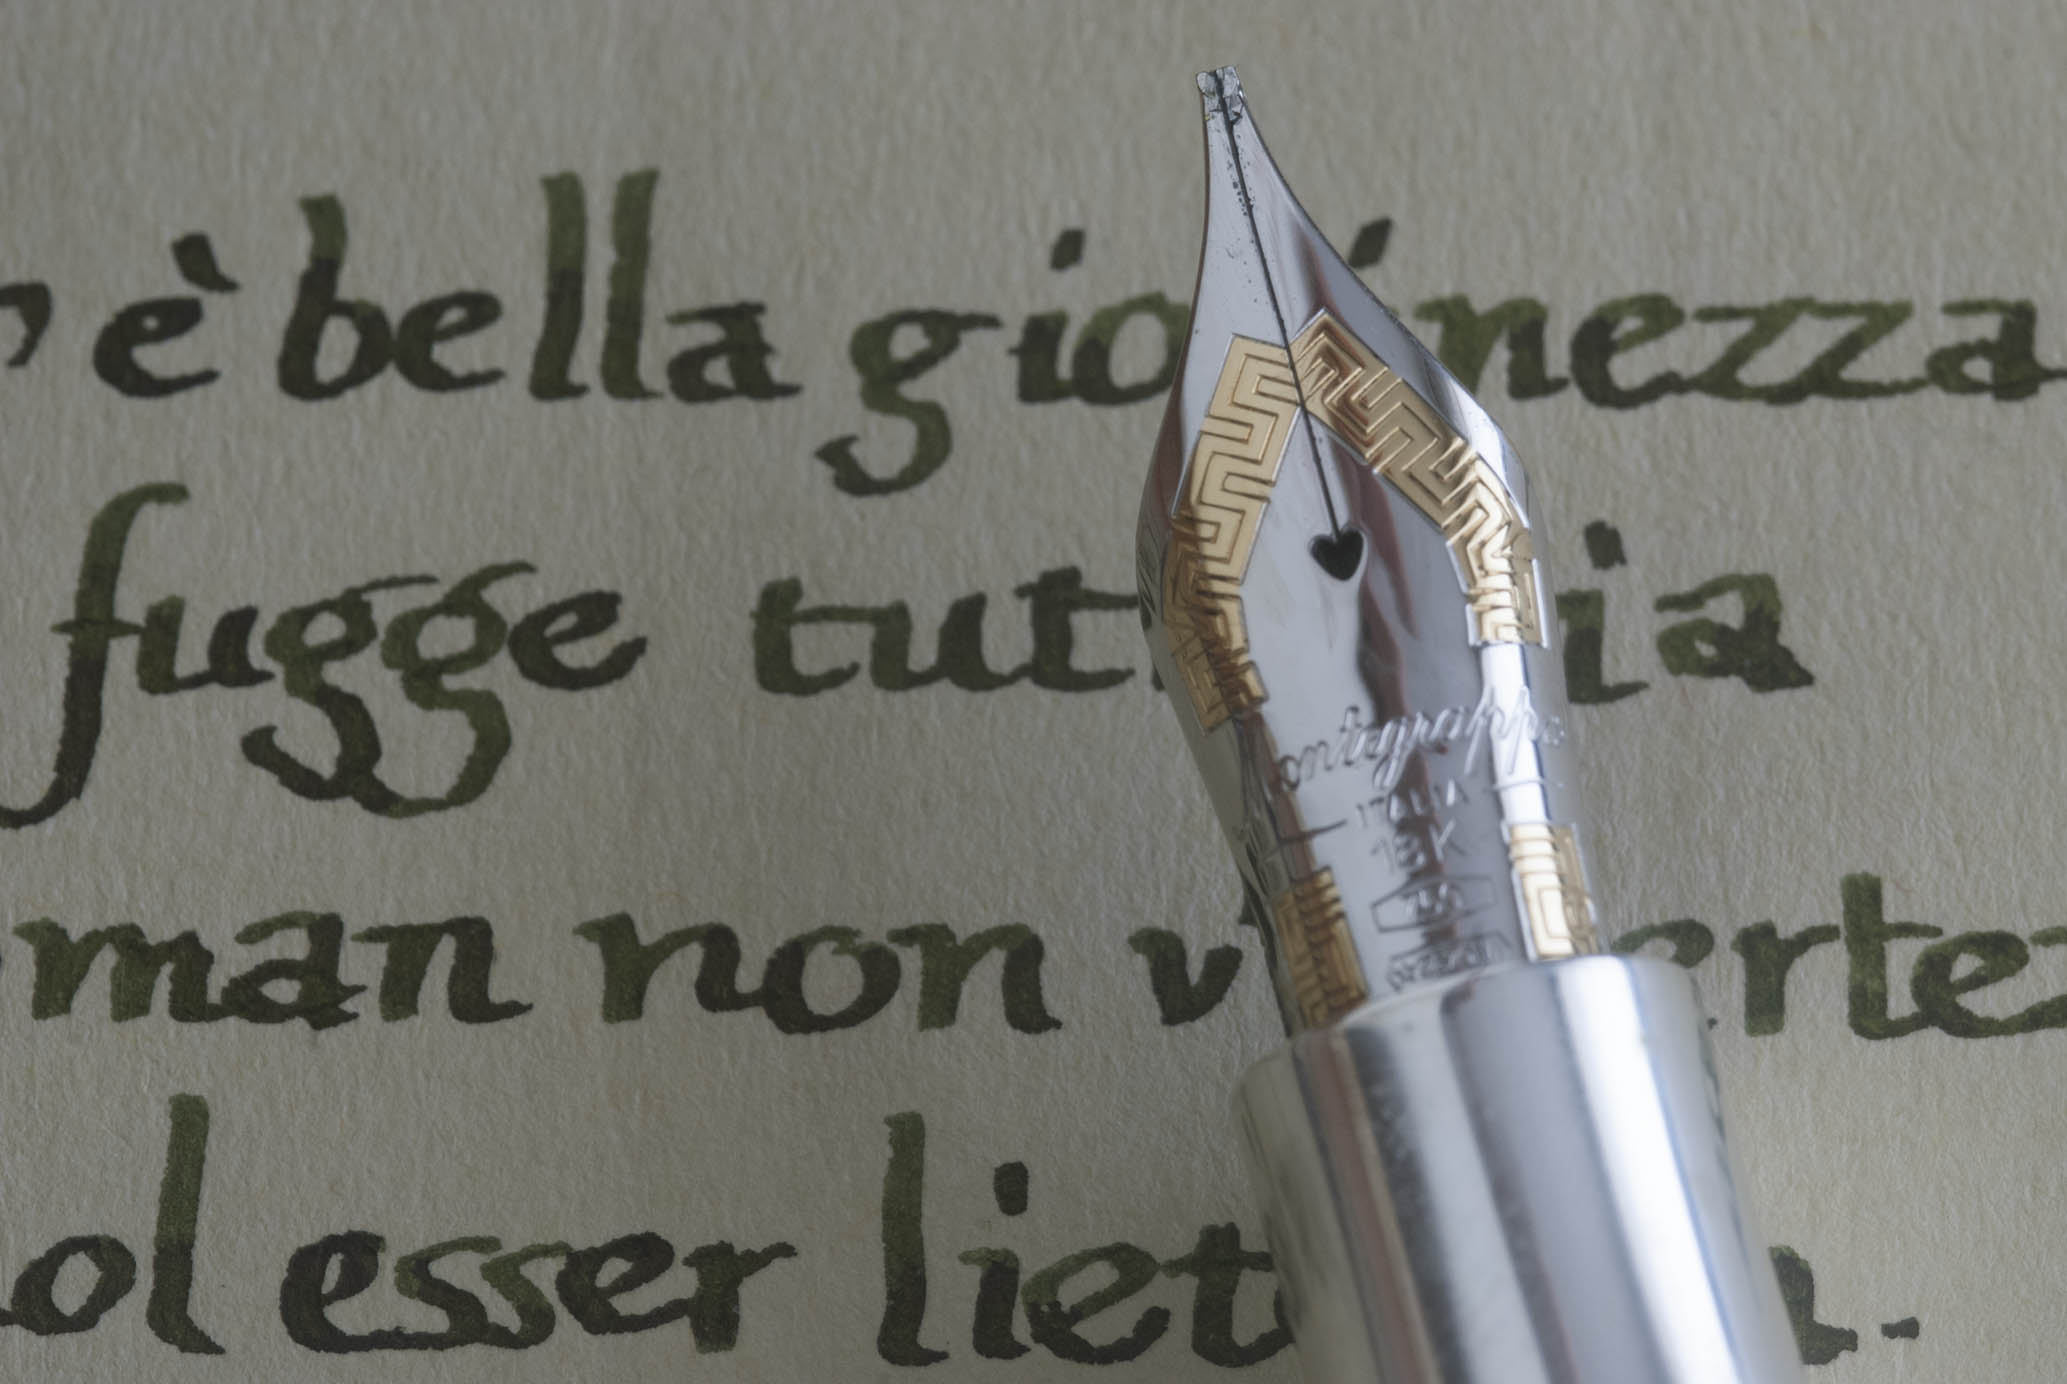 è bella gio inezza
fugge tut ia
man non v erte
ol esser liet a.
ontegrappa
ITALIA
18K
750